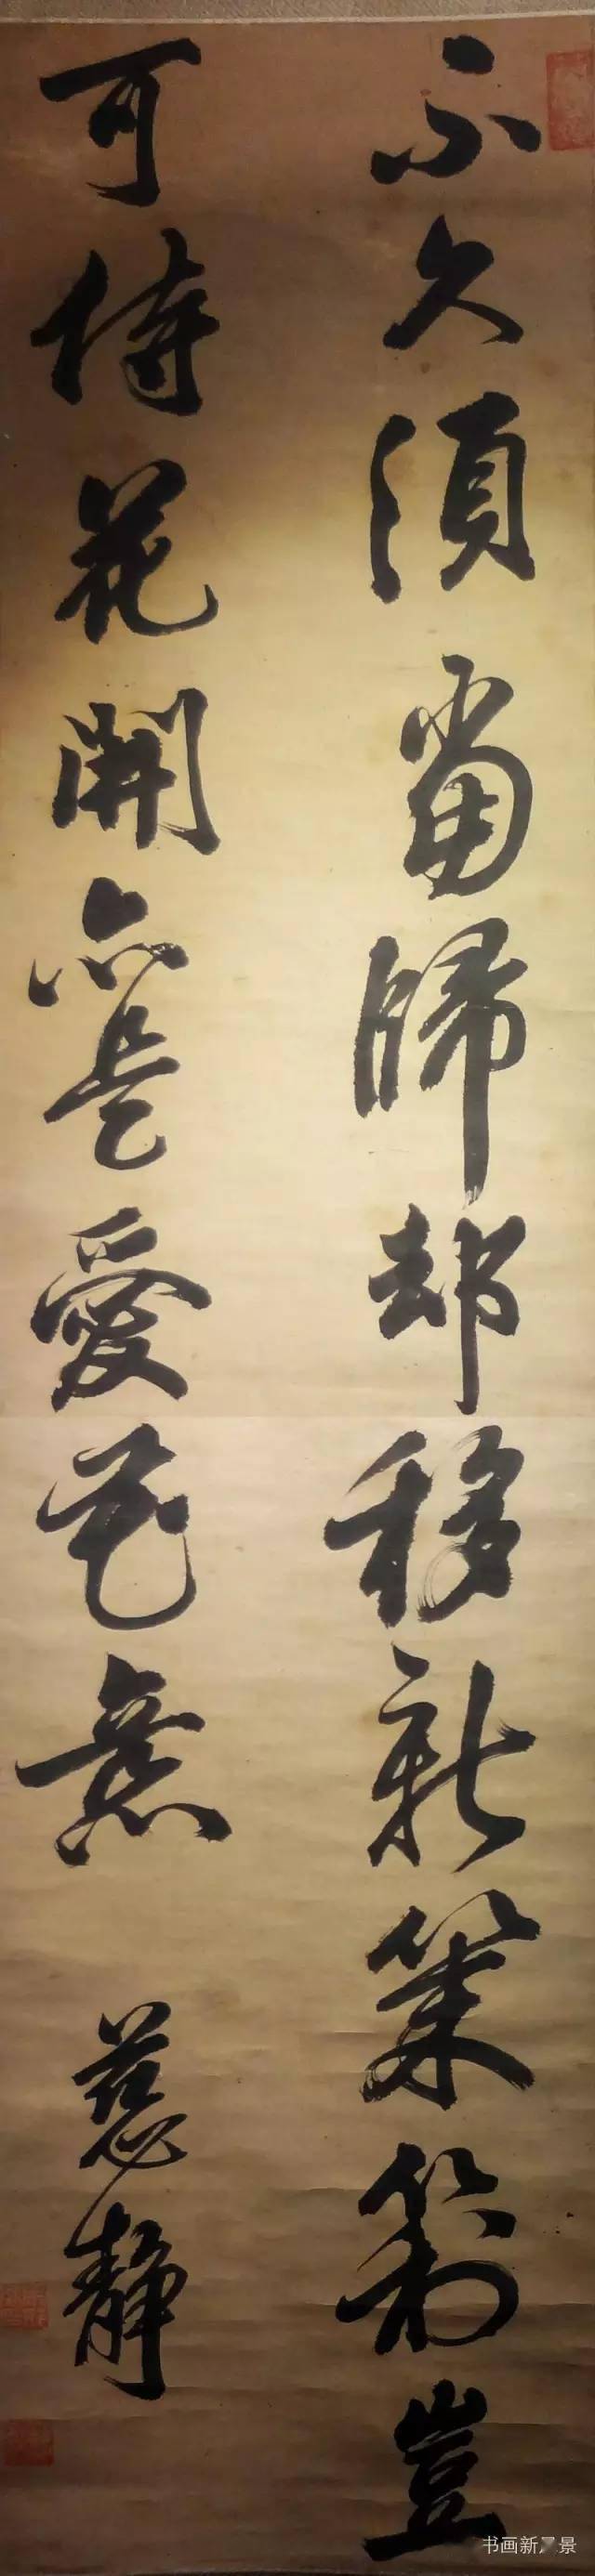 不久須當歸却移新豈
可待花開亦是愛花意
慈靜
书画新风景